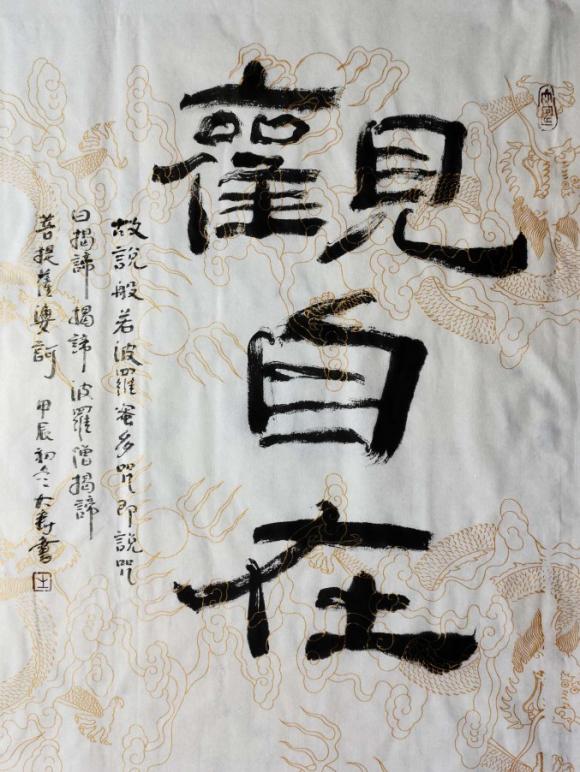 觀自在
故說般若波羅蜜多咒即說咒
曰揭諦揭諦波羅僧揭諦
菩提薩婆訶 甲辰初冬大寿書